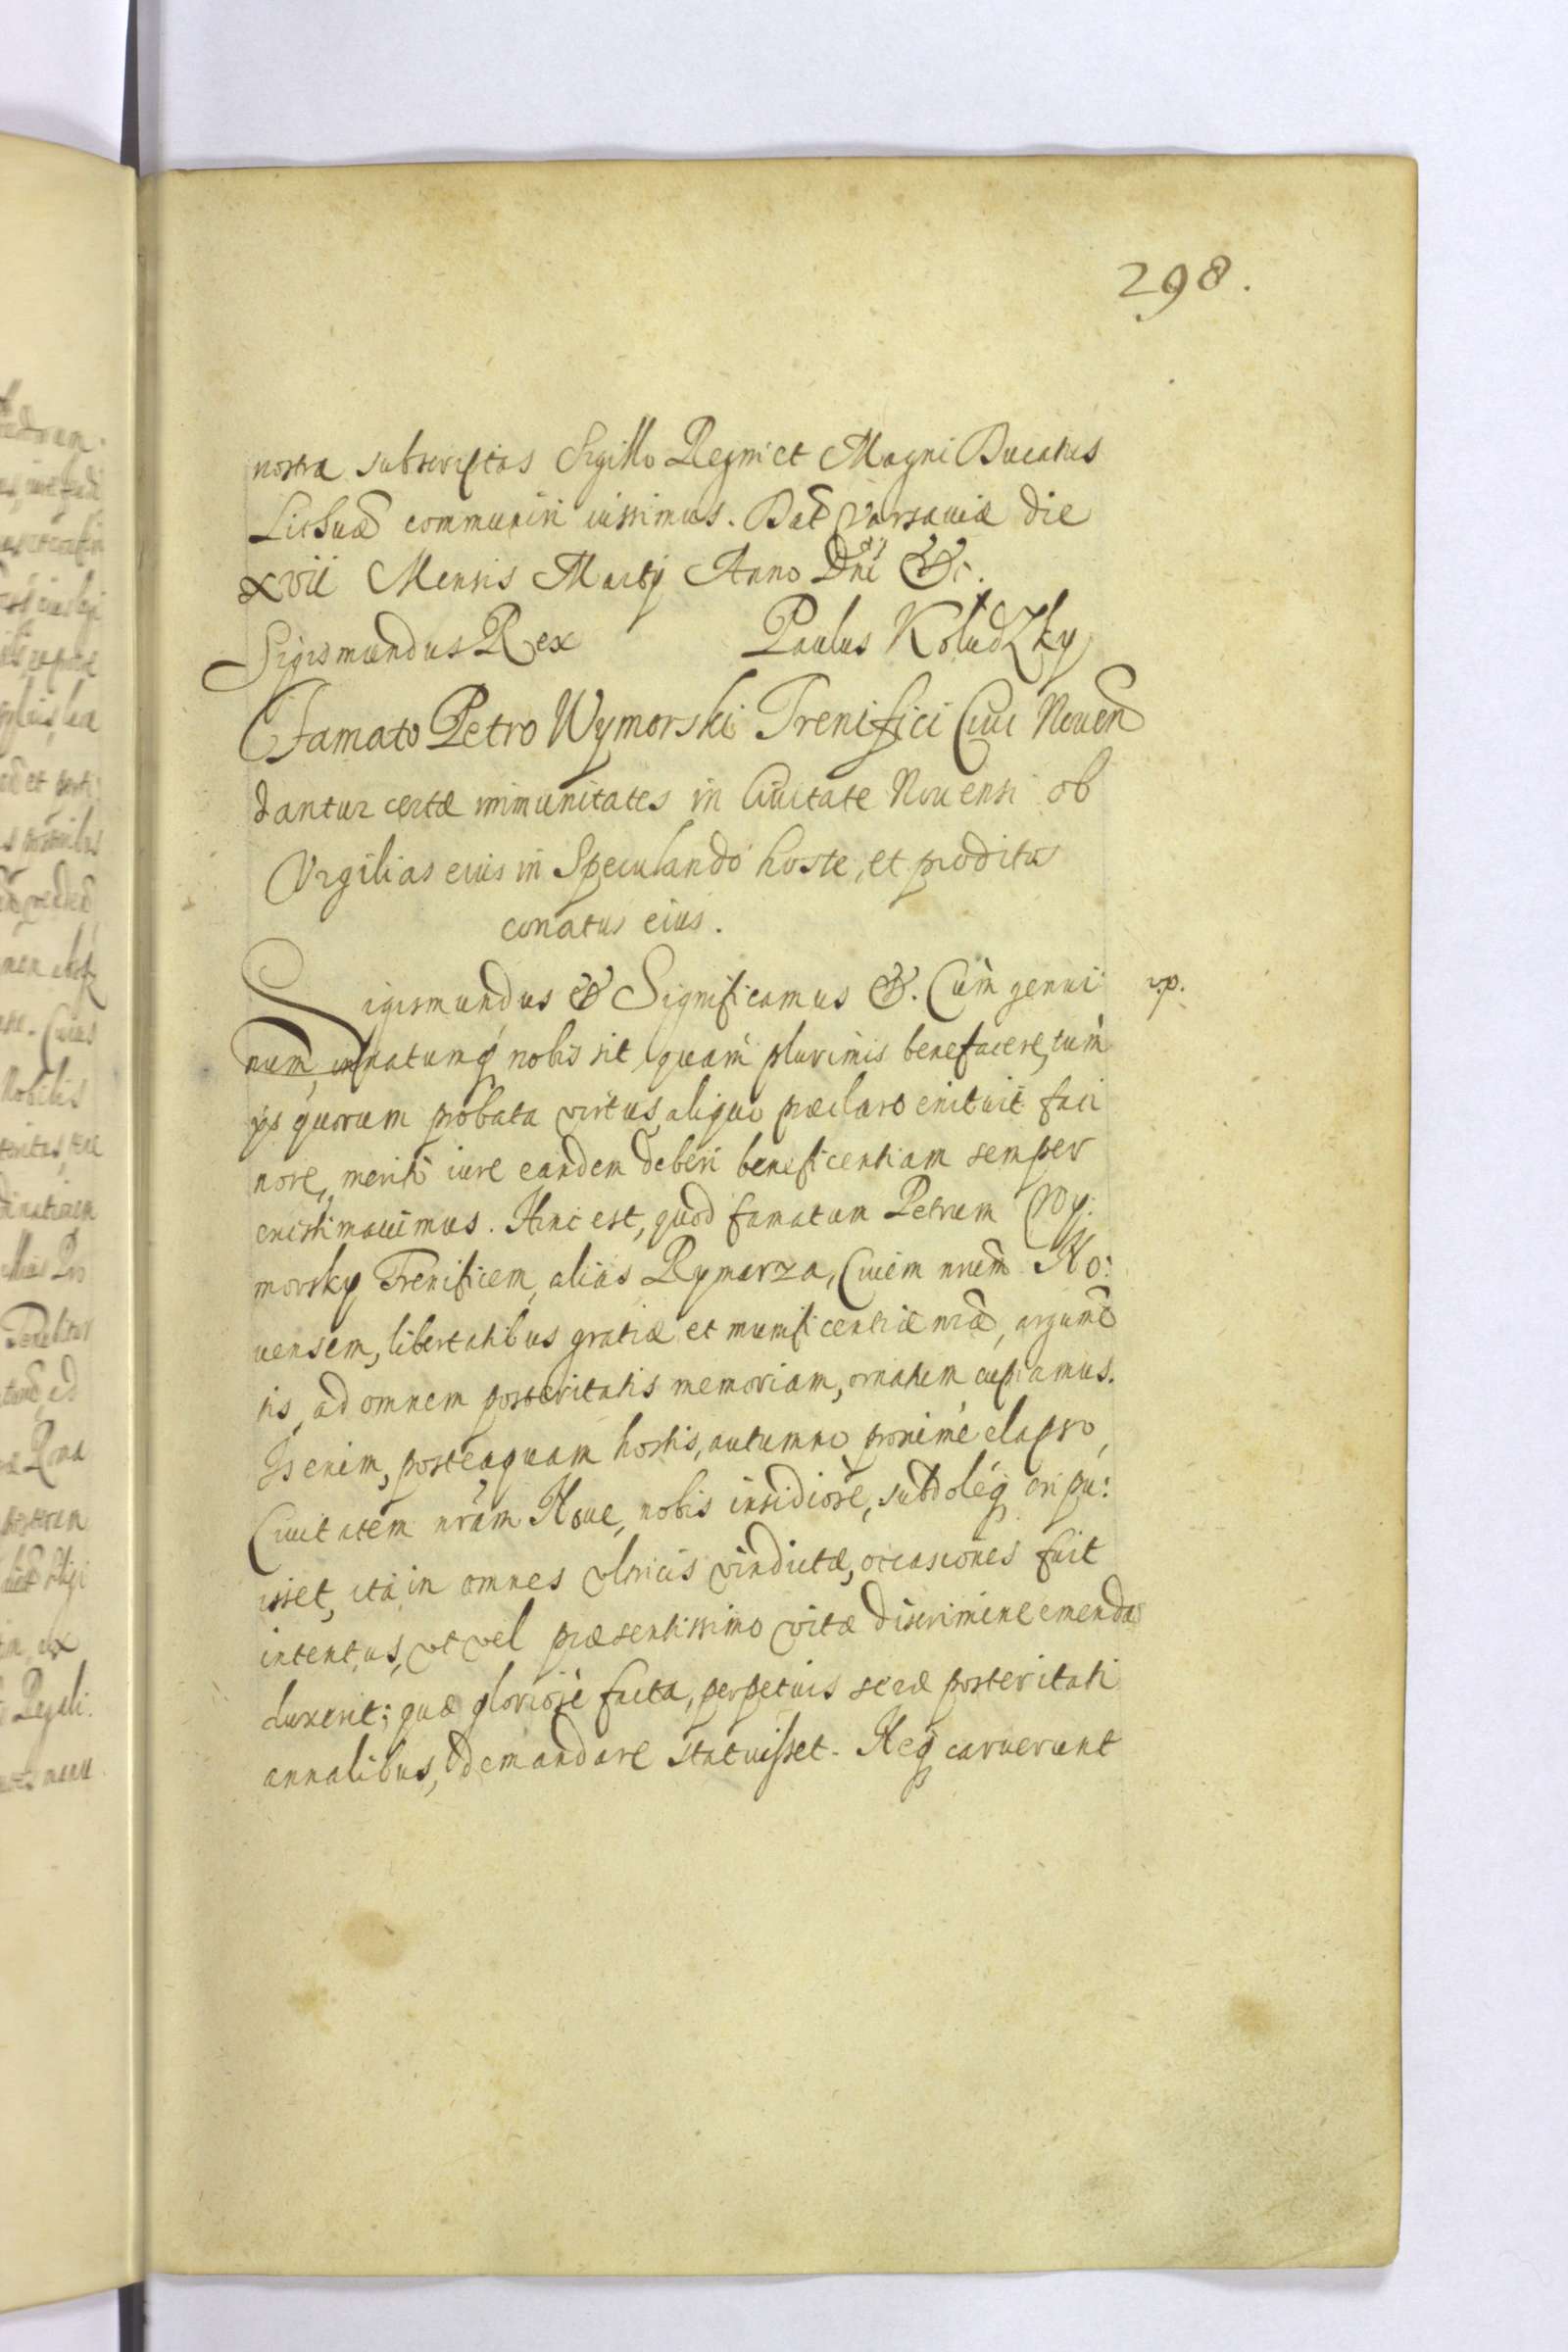 298.
nostra subscriptas Sigillo Regni et Magni Ducatus
Lithuae communiri iussimus. Dat Varsauiae die
xvii Mensis Martij Anno Dni &c.
Sigismundus Rex Paulus KoludZky
Famato Petro Wymorski Frenifici Ciui Nouen
dantur certae immunitates in Ciuitate Nouensi ob
Vigilias eius in Speculando hoste, et proditos
conatus eius.
Sigismundus & Significamus &. Cum genui
v.p.
num, innatumq nobis sit quam plurimis benefacere, tum
ijs quorum probata virtus, aliquo praeclaro enituit faci
nore, merito iure eandem deberi beneficentiam semper
existimauimus. Hinc est, quod famatum Petrum Wy:
morsky Frenificem, alias Rymarza, Ciuem nrum No:
uensem, libertatibus gratiae et munificentiae nrae, argume
tis, ad omnem posteritatis memoriam, ornatum cupiamus.
Is enim, posteaquam hostis, autumno proxime elapso,
Ciuitatem nram Noue, nobis insidiose, subdoleq eripu:
isset, ita in omnes vltricis vindictae, occasiones fuit
intentus, vt vel praesentissimo vitae discrimine emendas
duxerit; quae gloriose facta, perpetuis serae posteritati
annalibus, demandare statuisset. Neq caruerunt